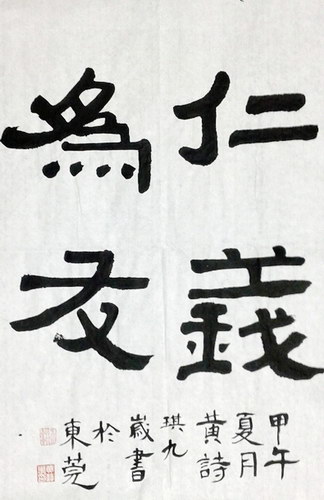 仁義
為友
甲午
夏月
黄詩
琪九
嵗書
於
東莞